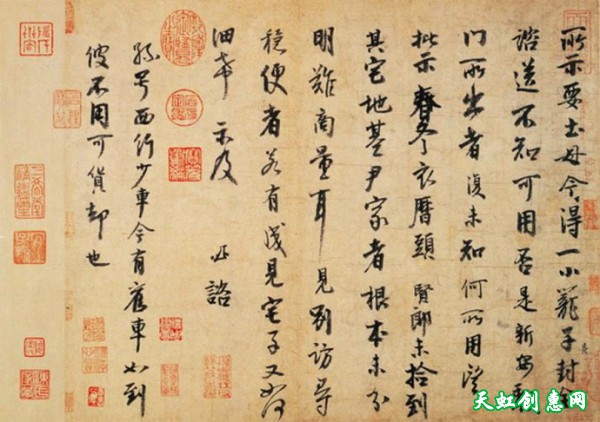 所示要土母今得一小籠子封全
諮送不知可用否是新安缺
門所出者復未知何所用望
批示春冬衣曆頭賢郎未拾到
其宅地基尹家者根本未分
明難商量耳見別訪尋
穩便者若有成見宅子又如何
細希示及 必諮
孫号西行少車今有舊車如到
彼不用可貨却也
天虹创惠网